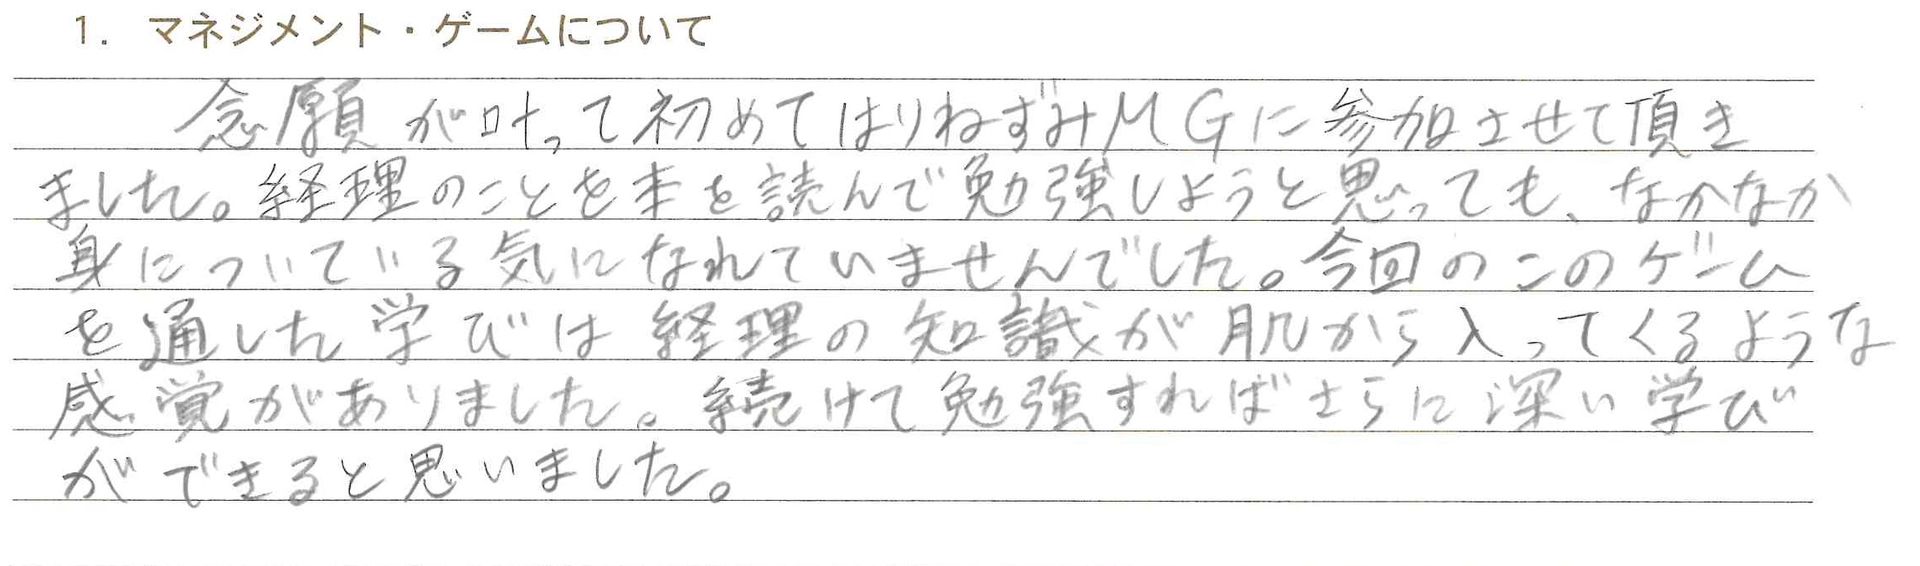 1. マネジメント・ゲームについて
念願が叶って初めてはりねずみMGに参加させて頂き
ました。経理のことを本を読んで勉強しようと思っても、なかなか
身についている気になれていませんでした。今回のこのゲーム
を通した学びは経理の知識が肌から入ってくるような
感覚がありました。続けて勉強すればさらに深い学び
ができると思いました。